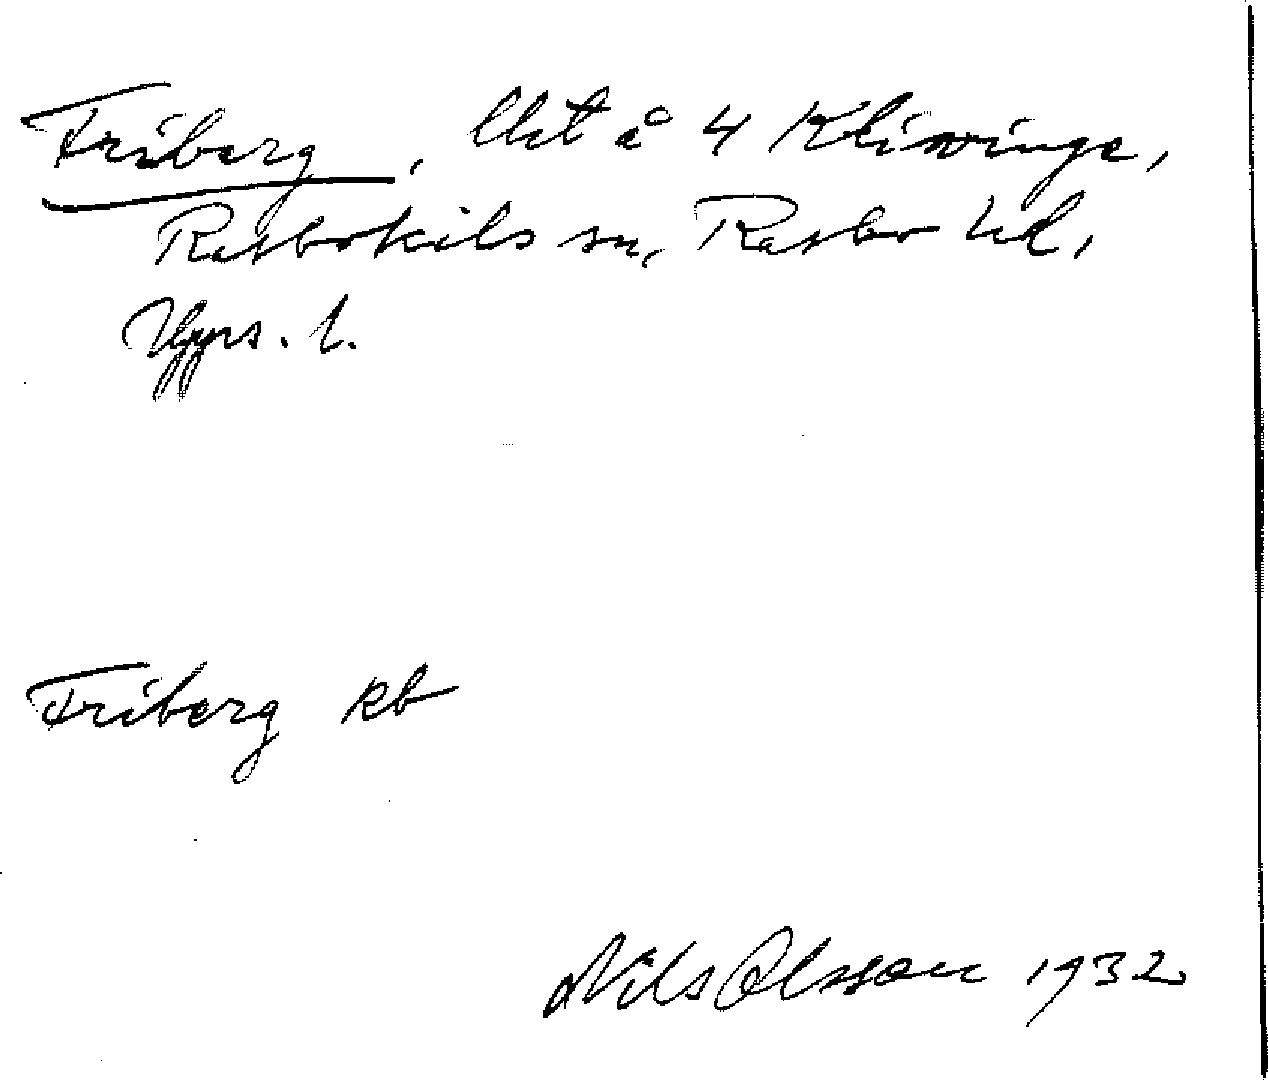 Friberg, lht å 4 Klissinge,
Rasbokils sn, Rasbo hd,
Upps. l.
Friberg kb
Nils Olsson 1932